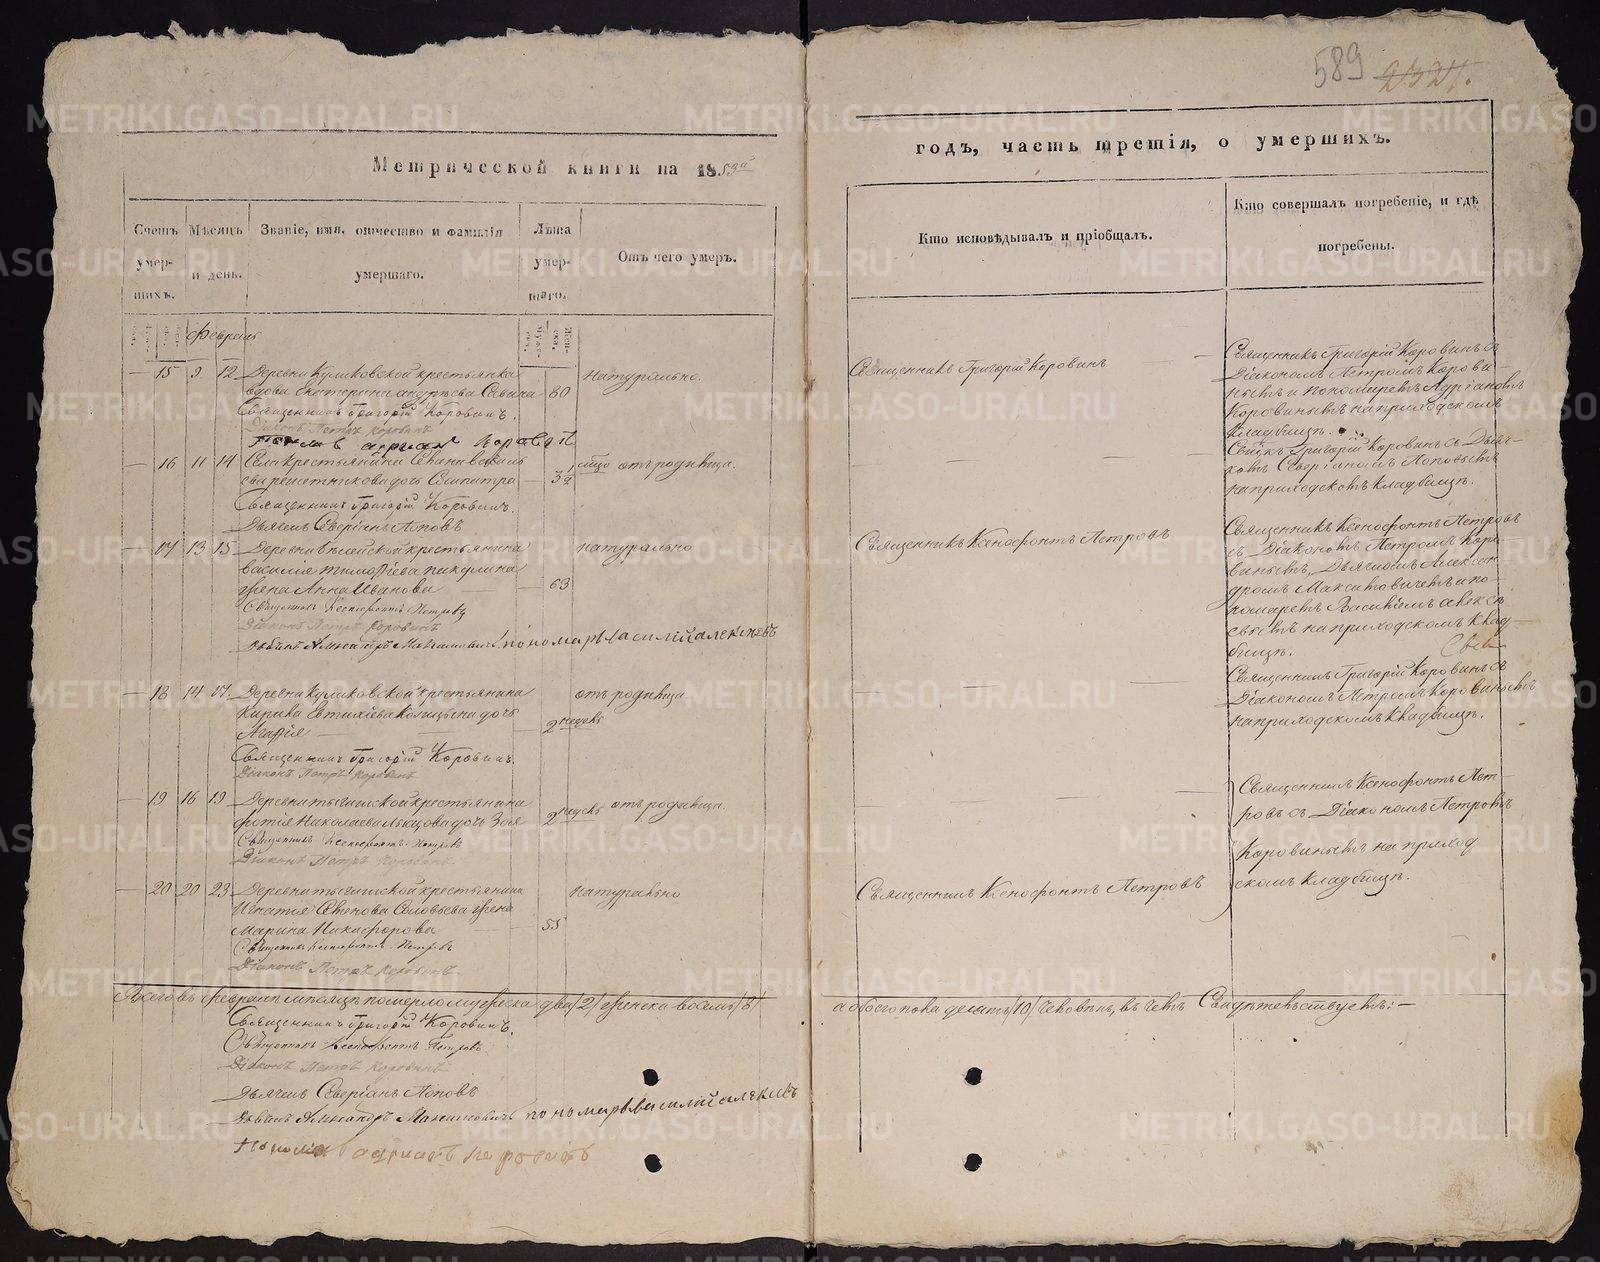 589 2327.
Метрической книги на 1853й
Счетъ умер-шихъ.
Мѣсяцъ и день.
Званіе, имя, отчество и фамилія умершаго.
Лѣта умер-шаго.
Отъ чего умеръ.
Февраль
15 9 12 Деревни Куликовской крестьянка
вдова Екатерина Андреева Савина 80 натурально.
Священникъ Григорій Коровинъ.
Діаконъ Петръ Коровинъ
16 11 14 Села крестьянина
дочь 3 1/2 отъ родимца.
Священникъ Григорій Коровинъ.
Дьячекъ Северіанъ Поповъ
17 13 15 Деревни крестьянина натурально
Василія Тимофіева Пикулина
жена Анна Иванова 63
Священникъ Ксенофонтъ Петровъ
Діаконъ Петръ Коровинъ
Дьячекъ Александръ Максимовичъ пономарь Василій Алексѣевъ
18 14 17 Деревни Куликовской крестьянина отъ родимца
дочь
Агафія 2 недель
Священникъ Григорій Коровинъ.
Діаконъ Петръ Коровинъ
19 16 19 Деревни Тыгишской крестьянина
Фотія Николаева дочь Зоя 2 недель отъ родимца.
Священникъ Ксенофонтъ Петровъ
Діаконъ Петръ Коровинъ
20 20 23 Деревни Тыгишской крестьянина натурально
Игнатія Семенова Соловьева жена
Марина Никифорова 55
Священникъ Ксенофонтъ Петровъ
Діаконъ Петръ Коровинъ
А всего въ Февралѣ мѣсяцѣ померло мужеска два /2/ женска восемь /8/
Священникъ Григорій Коровинъ.
Священникъ Ксенофонтъ Петровъ
Діаконъ Петръ Коровинъ
Дьячекъ Северіанъ Поповъ
Дьячекъ Александръ Максимовичъ пономарь Василій Алексѣевъ
Пономарь Адріанъ Коровинъ
годъ, часть третія, о умершихъ.
Кто исповѣдывалъ и пріобщалъ.
Кто совершалъ погребеніе, и гдѣ погребены.
Священникъ Григорій Коровинъ
Священникъ Григорій Коровинъ съ
Діакономъ Петромъ Корови-
нымъ и пономаремъ Адріаномъ
Коровинымъ на приходскомъ
кладбищѣ.
Свщкъ Григорій Коровинъ съ Дьяч-
комъ Северіаномъ Поповымъ
на приходскомъ кладбищѣ.
Священникъ Ксенофонтъ Петровъ
Священникъ Ксенофонтъ Петровъ
съ Діакономъ Петромъ Коро-
винымъ, Дьячкомъ Алексан-
дромъ Максимовичемъ и по-
номаремъ Василіемъ Алексѣ-
евымъ на приходскомъ клад-
бищѣ.
Священникъ Григорій Коровинъ съ
Діакономъ Петромъ Коровинымъ
на приходскомъ кладбищѣ.
Священникъ Ксенофонтъ Пет-
ровъ съ Діакономъ Петромъ
Коровинымъ на приход-
скомъ кладбищѣ.
Священникъ Ксенофонтъ Петровъ
а обоего пола десять /10/ человѣкъ, въ чемъ Свидѣтельствуемъ:
METRIKI.GASO-URAL.RU